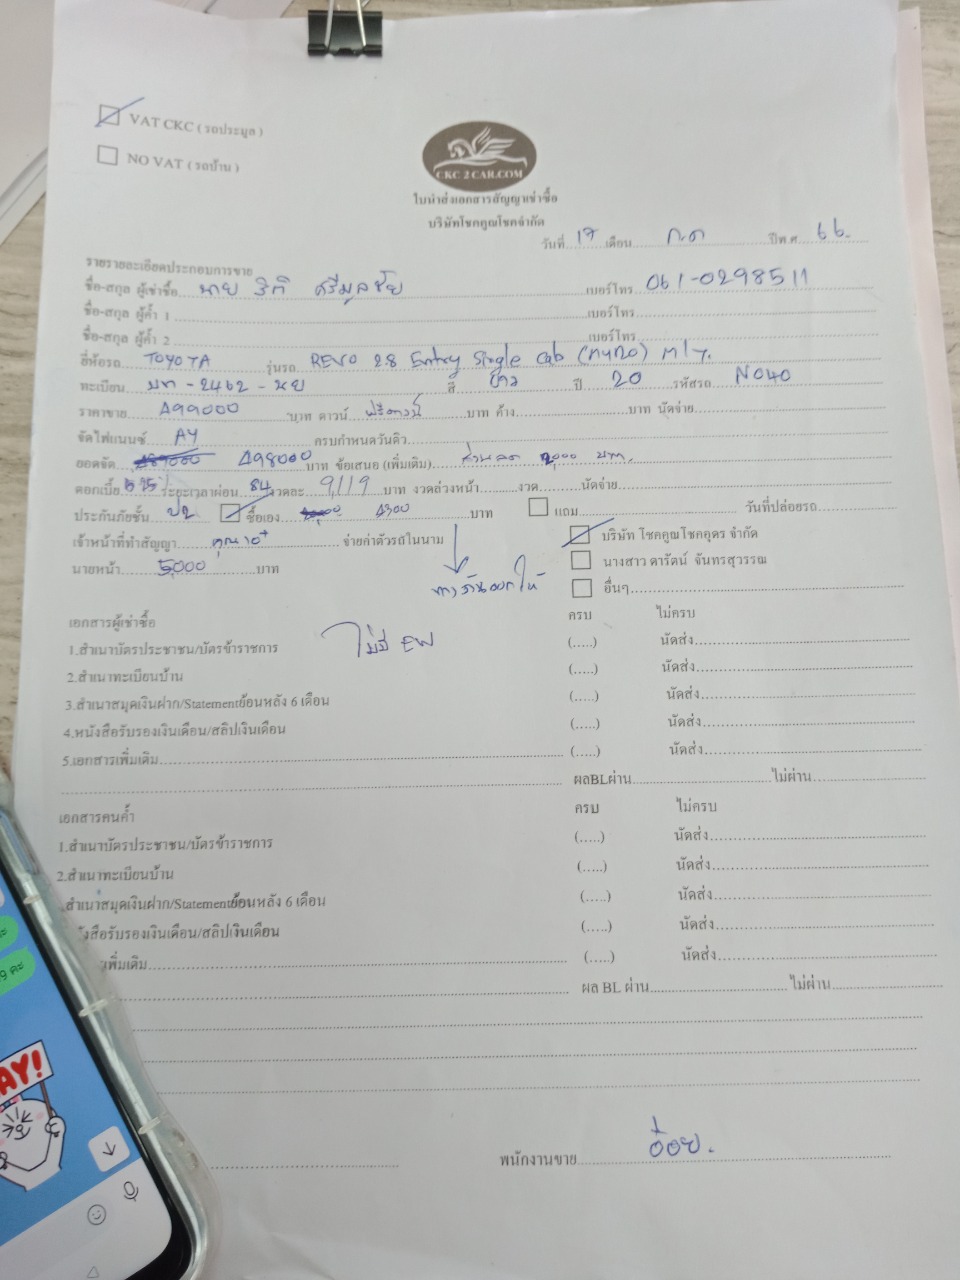 VAT CKC ( รถประมูล )
NO VAT ( รถบ้าน )
CKC 2 CAR.COM
ใบนำส่งเอกสารสัญญาเช่าซื้อ
บริษัทโชคคูณโชคจำกัด
วันที่ 17 เดือน ก.ค ปีพ.ศ. 66.
รายรายละเอียดประกอบการขาย
ชื่อ-สกุล ผู้เช่าซื้อ นาย ธิติ ศรีมูลชัย เบอร์โทร 061-0298511
ชื่อ-สกุล ผู้ค้ำ 1 เบอร์โทร
ชื่อ-สกุล ผู้ค้ำ 2 เบอร์โทร
ยี่ห้อรถ TOYOTA รุ่นรถ REVO 2.8 Entry Single Cab (MY20) M/T.
ทะเบียน 2462 สี ขาว ปี 20 รหัสรถ N040
ราคาขาย 499000 บาท ดาวน์ ฟรีดาวน์ บาท ค้าง บาท นัดจ่าย
จัดไฟแนนซ์ AY ครบกำหนดวันคิว
ยอดจัด 489000 498000 บาท ข้อเสนอ (เพิ่มเติม) ส่วนลด 2,000 บาท.
ดอกเบี้ย 5.75 ระยะเวลาผ่อน 84 งวดละ 9,119 บาท งวดล่วงหน้า งวด นัดจ่าย
ประกันภัยชั้น ป2 ซื้อเอง 4300 บาท แถม วันที่ปล่อยรถ
เจ้าหน้าที่ทำสัญญา จ่ายค่าตัวรถในนาม บริษัท โชคคูณโชคอุดร จำกัด
นายหน้า 5,000 บาท นางสาว ดารัตน์ จันทรสุวรรณ
ทางร้านออกให้ อื่นๆ
เอกสารผู้เช่าซื้อ ครบ ไม่ครบ
ไม่มี EW
1.สำเนาบัตรประชาชน/บัตรข้าราชการ (.....) นัดส่ง
2.สำเนาทะเบียนบ้าน (.....) นัดส่ง
3.สำเนาสมุดเงินฝาก/Statementย้อนหลัง 6 เดือน (.....) นัดส่ง
4.หนังสือรับรองเงินเดือน/สลิปเงินเดือน (.....) นัดส่ง
5.เอกสารเพิ่มเติม (.....) นัดส่ง
ผลBLผ่าน ไม่ผ่าน
เอกสารคนค้ำ ครบ ไม่ครบ
1.สำเนาบัตรประชาชน/บัตรข้าราชการ (.....) นัดส่ง
2.สำเนาทะเบียนบ้าน (.....) นัดส่ง
.สำเนาสมุดเงินฝาก/Statementย้อนหลัง 6 เดือน (.....) นัดส่ง
ังสือรับรองเงินเดือน/สลิปเงินเดือน (.....) นัดส่ง
เพิ่มเติม (.....) นัดส่ง
ผล BL ผ่าน ไม่ผ่าน
พนักงานขาย อ๋อย.
9 คะ
AY!